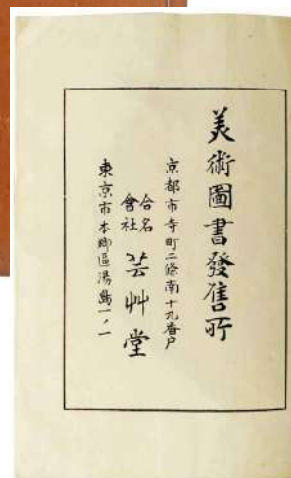 美術圖書發售所
京都市寺町二條南十九番戸
合名會社 芸艸堂
東京市本郷區湯島一ノ一